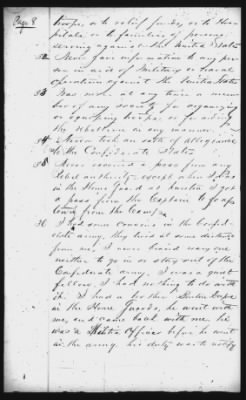 Page 8
troops, or to relief funds, or to Hos-
pitals, or to families of persons
serving against the United States
52 Never gave information to any per-
son in aid of Military or Naval
operations against the United States
53 Was never at any time a mem-
ber of any society for organizing
or equipping troops, or for aiding
the rebellion in any manner.
54 Never took an oath of allegiance
to the Confederate States
55 Never received a pass from any
rebel authority, except when I was
in the Home Guard at Austin I got
a pass from the Captain to go up
town from the Camp
56 I had some Cousins in the Confed-
erate army. They lived at some distance
from me, I never advised any one
neither to go in or stay out of the
Confederate army. I was a quiet
fellow. I had nothing to do with
it. I had a brother
in the Home Guards, he went with
me, and came back with me. he
was a Militia Officer before he went
in the army. his duty was to notify